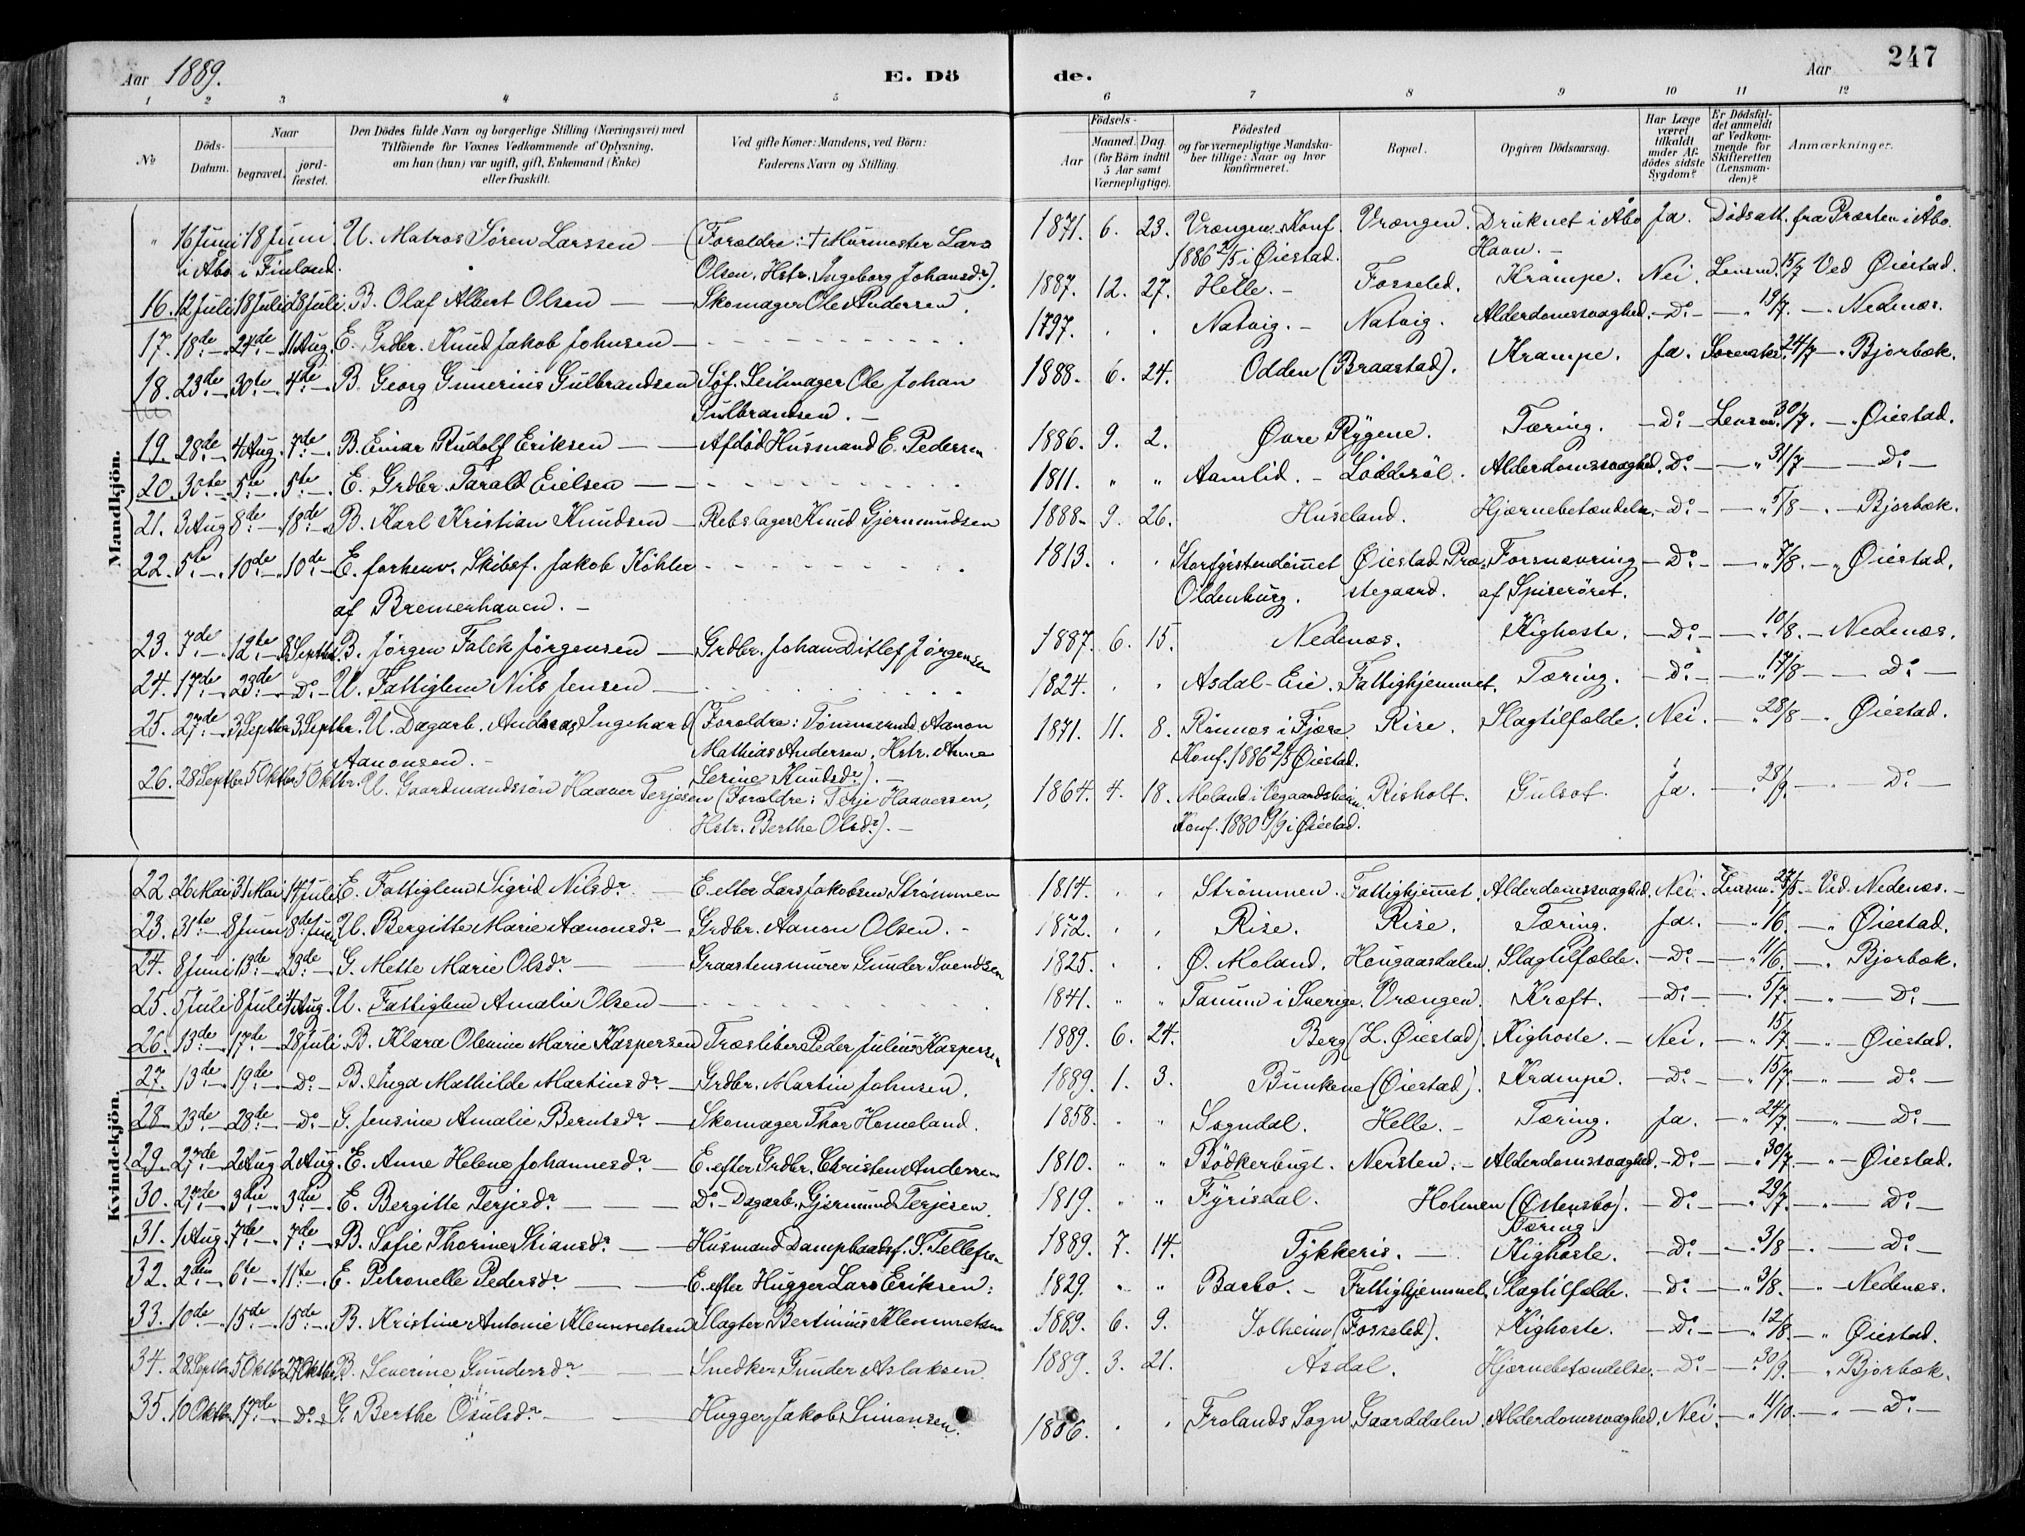 Aar 1889. E. Dö de. Aar 247
1 2 3 4 5 6 7 8 9 10 11 12
No
Döds-Datum.
Naar begravet. jordfæstet.
Den Dödes fulde Navn og borgerlige Stilling (Næringsvei) med
Tilföiende for Voxnes Vedkommende af Oplysning,
om han (hun) var ugift, gift, Enkemand (Enke)
eller fraskilt.
Ved gifte Koner: Mandens, ved Börn:
Faderens Navn og Stilling.
Födsels-
Aar Maaned. Dag. (for Börn indtil 5 Aar samt Værnepligtige).
Födested
og for værnepligtige Mandskaber tillige: Naar og hvor konfirmeret.
Bopæl.
Opgiven Dödsaarsag.
Har Læge været tilkaldt under Afdödes sidste Sygdom?
Er Dödsfaldet anmeldt af Vedkommende for Skifteretten (Lensmanden)?
Anmærkninger.
Mandkjön.
" 16 Juni 18 Juni U. Matros Sören Larssen — (Forældre: † Murmester Lars 1871. 6. 23. Vrængen. Konf. Vrængen. Druknet i Åbo Ja. Dödsatt. fra Præsten i Åbo.
i Åbo i Finland. Olsen, Hstr. Ingeborg Johansdr). 1886 i Øiestad. Havn. —
16. 12 Juli 18 Juli 28 Juli. B. Olaf Albert Olsen — Skomager Ole Andersen. 1887. 12. 27. Helle. — Fosseled. Krampe. Nei. Lensm. 15/7 Ved Øiestad.
17. 18de 24de 11 Aug. E. Grdbr. Knud Jakob Johnsen — 1797. Natvig. — Natvig. Alderdomssvaghed. — Do — " 19/7 — " Nedenæs.
18. 23de 30te 4de B. Georg Gunerius Gulbrandsen Søf. Seilmager Ole Johan 1888. 6. 24. Odden (Braastad). Krampe. Ja. 24/7 — " Bjorbæk.
Gulbrandsen. —
19. 28de 4 Aug. 7de B. Einar Rudolf Eriksen — Afdöd Husmand E. Pedersen 1886. 9. 2. Øvre Rygene. Tæring. — Do — Lensm. 30/7 — " Øiestad.
20. 30te 5te 5te E. Grdbr. Tarald Eielsen — 1811. " " Aamlid. — Löddesöl. Alderdomssvaghed. Do — " 31/7 — Do —
21. 3 Aug 8de 18de B. Karl Kristian Knudsen — Rebslager Knud Gjermundsen 1888. 9. 26. Huseland. Hjærnebetændelse. Do — " 5/8 — " Bjorbæk.
22. 5te 10de 10de E. forhenv. Skibsf. Jakob Köhler 1813. Storfyrstendömet Øiestad Præ- Forsnævring — Do — " 7/8. — " Øiestad.
af Bremerhaven. — Oldenburg. stegaard. af Spiseröret.
23. 7de 12te 8 Septbr. B. Jørgen Falck Jørgensen — Grdbr. Johan Ditlef Jörgensen 1887. 6. 15. Nedenæs. Kighoste. — Do — " 10/8. — Nedenæs.
24. 17de 23de Do U. Fattiglem Nils Jensen — 1824. Asdal-Eie. Fattighjemmet. Tæring. — Do — " 17/8 — Do —
25. 27de 3 Septbr 3 Septbr. U. Dagarb. Andreas Ingehard (Forældre: Tömmermd. Aanon 1871. 11. 8. Rönnes i Fjære. Rise. Slagtilfælde. Nei. — " 28/8 — " Øiestad.
Aanonsen. — Mathias Andersen, Hstr. Anne Konf. 1886 Øiestad.
Serine Knudsdr). —
26. 28 Septbr 5 Oktbr 5 Oktbr. U. Gaardmandssön Haaver Terjesen (Forældre: Terje Haaversen, 1864. 4. 18. Moland i Vegaardsheim. Risholt. Gulsot. Ja. — " 28/9. — " Do —
Hstr. Berthe Olsdr). — Konf. 1880 i Øiestad.
Kvindekjön.
22. 26 Mai 31 Mai 14 Juli E. Fattiglem Sigrid Nilsdr. — E. efter Lars Jakobsen Strömmen 1814. Strömmen. Fattighjemmet. Alderdomssvaghed. Nei. Lensm. Ved Nedenæs. —
23. 31te 8 Juni 8de Juni U. Bergitte Marie Aanonsdr — Grdbr. Aanon Olsen. — 1872. Rise. Rise. Tæring. Ja. — " 1/6. — " Øiestad.
24. 8 Juni 13de 23de G. Mette Marie Olsdr — Graastensmurer Gunder Svendsen 1825. Ø. Moland. Hougaasdalen. Slagtilfælde. — Do — " 11/6. — " Bjorbæk.
25. 5 Juli 8 Juli 4 Aug. U. Fattiglem Amalie Olsen — 1841. " " Tanum i Sverige. Vrængen. Kræft. — Do — " 5/7. — " Do —
26. 13de 17de 28 Juli. B. Klara Olemine Marie Kaspersen Træsliber Peder Julius Kaspersen 1889. 6. 24. Berg (L. Øiestad). Kighoste. — Nei. — " 15/7 — " Øiestad.
27. 13de 19de Do B. Inga Mathilde Martinsdr — Grdbr. Martin Johnsen. 1889. 1. 3. Bunkene (Øiestad). Krampe. — Do — " 15/7 — " Do —
28 23de 28de Do G. Jensine Amalie Berntsdr — Skomager Thor Homeland. 1858. " Sogndal. Helle. — Tæring. Ja. — " 24/7. — " Do —
29. 27de 2 Aug 2 Aug. E. Anne Helene Johannesdr — E. efter Grdbr. Christen Andersen 1810. " " Bödkerbugt. Nersten. — Alderdomssvaghed. — Do — " 30/7 — " Øiestad.
30. 27de 3die 3die E. Bergitte Terjesdr — Do — Dagarb. Gjermund Terjesen. 1819. " " Fyrisdal. Holmen (Østensbö). — Do — " 29/7. — " Do —
31. 1 Aug. 7de 7de B. Sofie Thorine Stiansdr. — Husmand Dampbaadsf. S. Tellefsen 1889. 7. 14. Tykkeris. — Tæring Kighoste. — Do — " 3/8 — " Do —
32. 2den 6te 11te E. Petronelle Pedersdr — E. efter Hugger Lars Eriksen. 1829. " " Barbo. — Fattighjemmet. Slagtilfælde. — Do — " 3/8. — " Nedenæs.
33. 10de 15de 15de B. Kristine Antonie Klemmetsen Slagter Bertinius Klemmetsen 1889. 6. 9. Solheim (Fosseled). Kighoste. — Do — " 12/8 — " Øiestad.
34. 28 Septbr. 5 Oktbr 27 Oktbr. B. Severine Gundersdr — Snedker Gunder Aslaksen. 1889. 3. 21. Asdal. Hjærnebetændelse. — Do — " 30/9. " Bjorbæk.
35. 10 Oktbr. 17de Do G. Berthe Osulsdr — Hugger Jakob Simonsen. Frolands Sogn. Gaarddalen. Alderdomssvaghed. Nei. — " 11/10. — " Do —